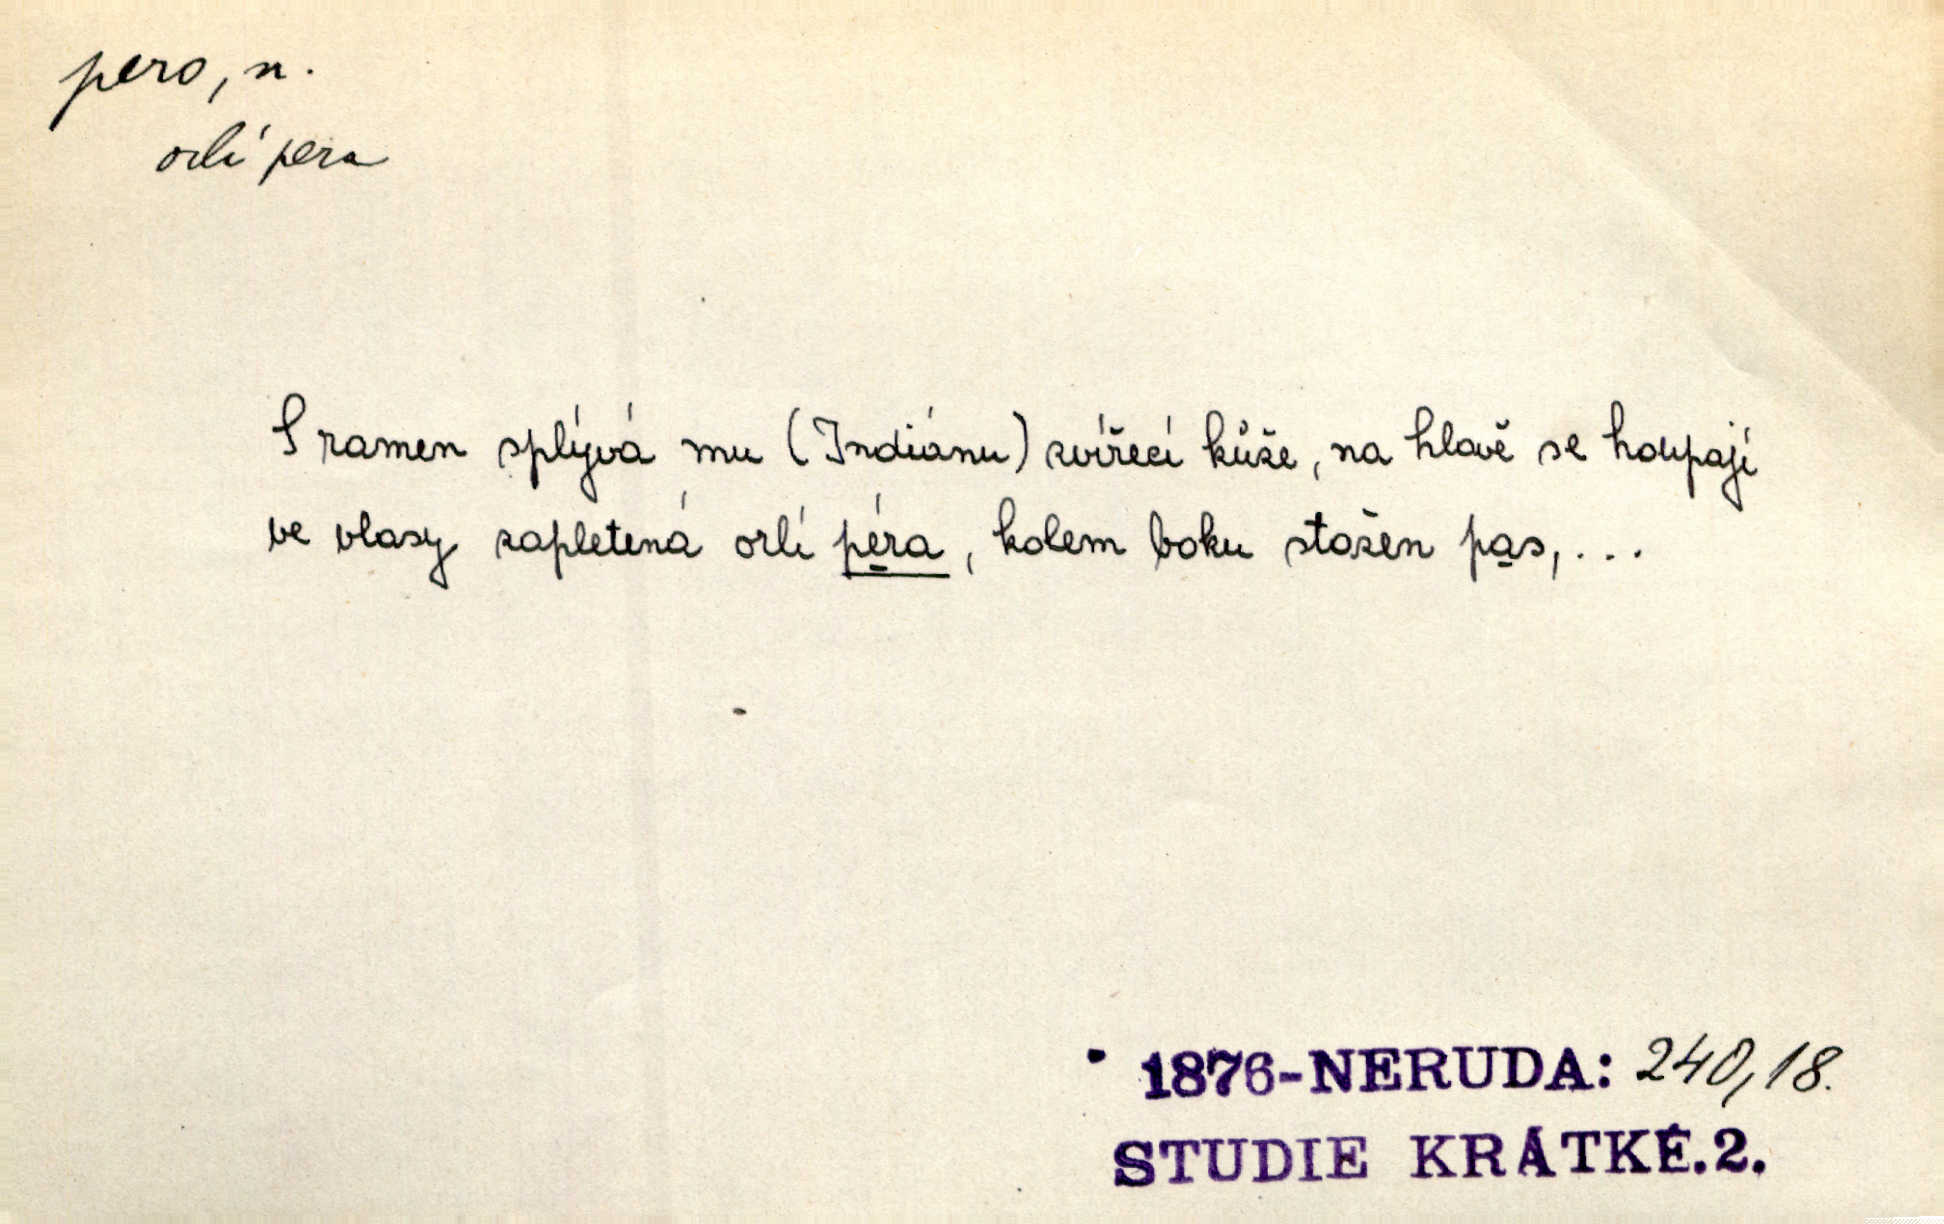 pero, n.
orlí pera
S ramen splývá mu (Indiánu) zvířecí kůže, na hlavě se houpají
ve vlasy zapletená orlí péra, kolem boku stažen pas, . . .
1876-NERUDA: 240, 18.
STUDIE KRÁTKÉ.2.